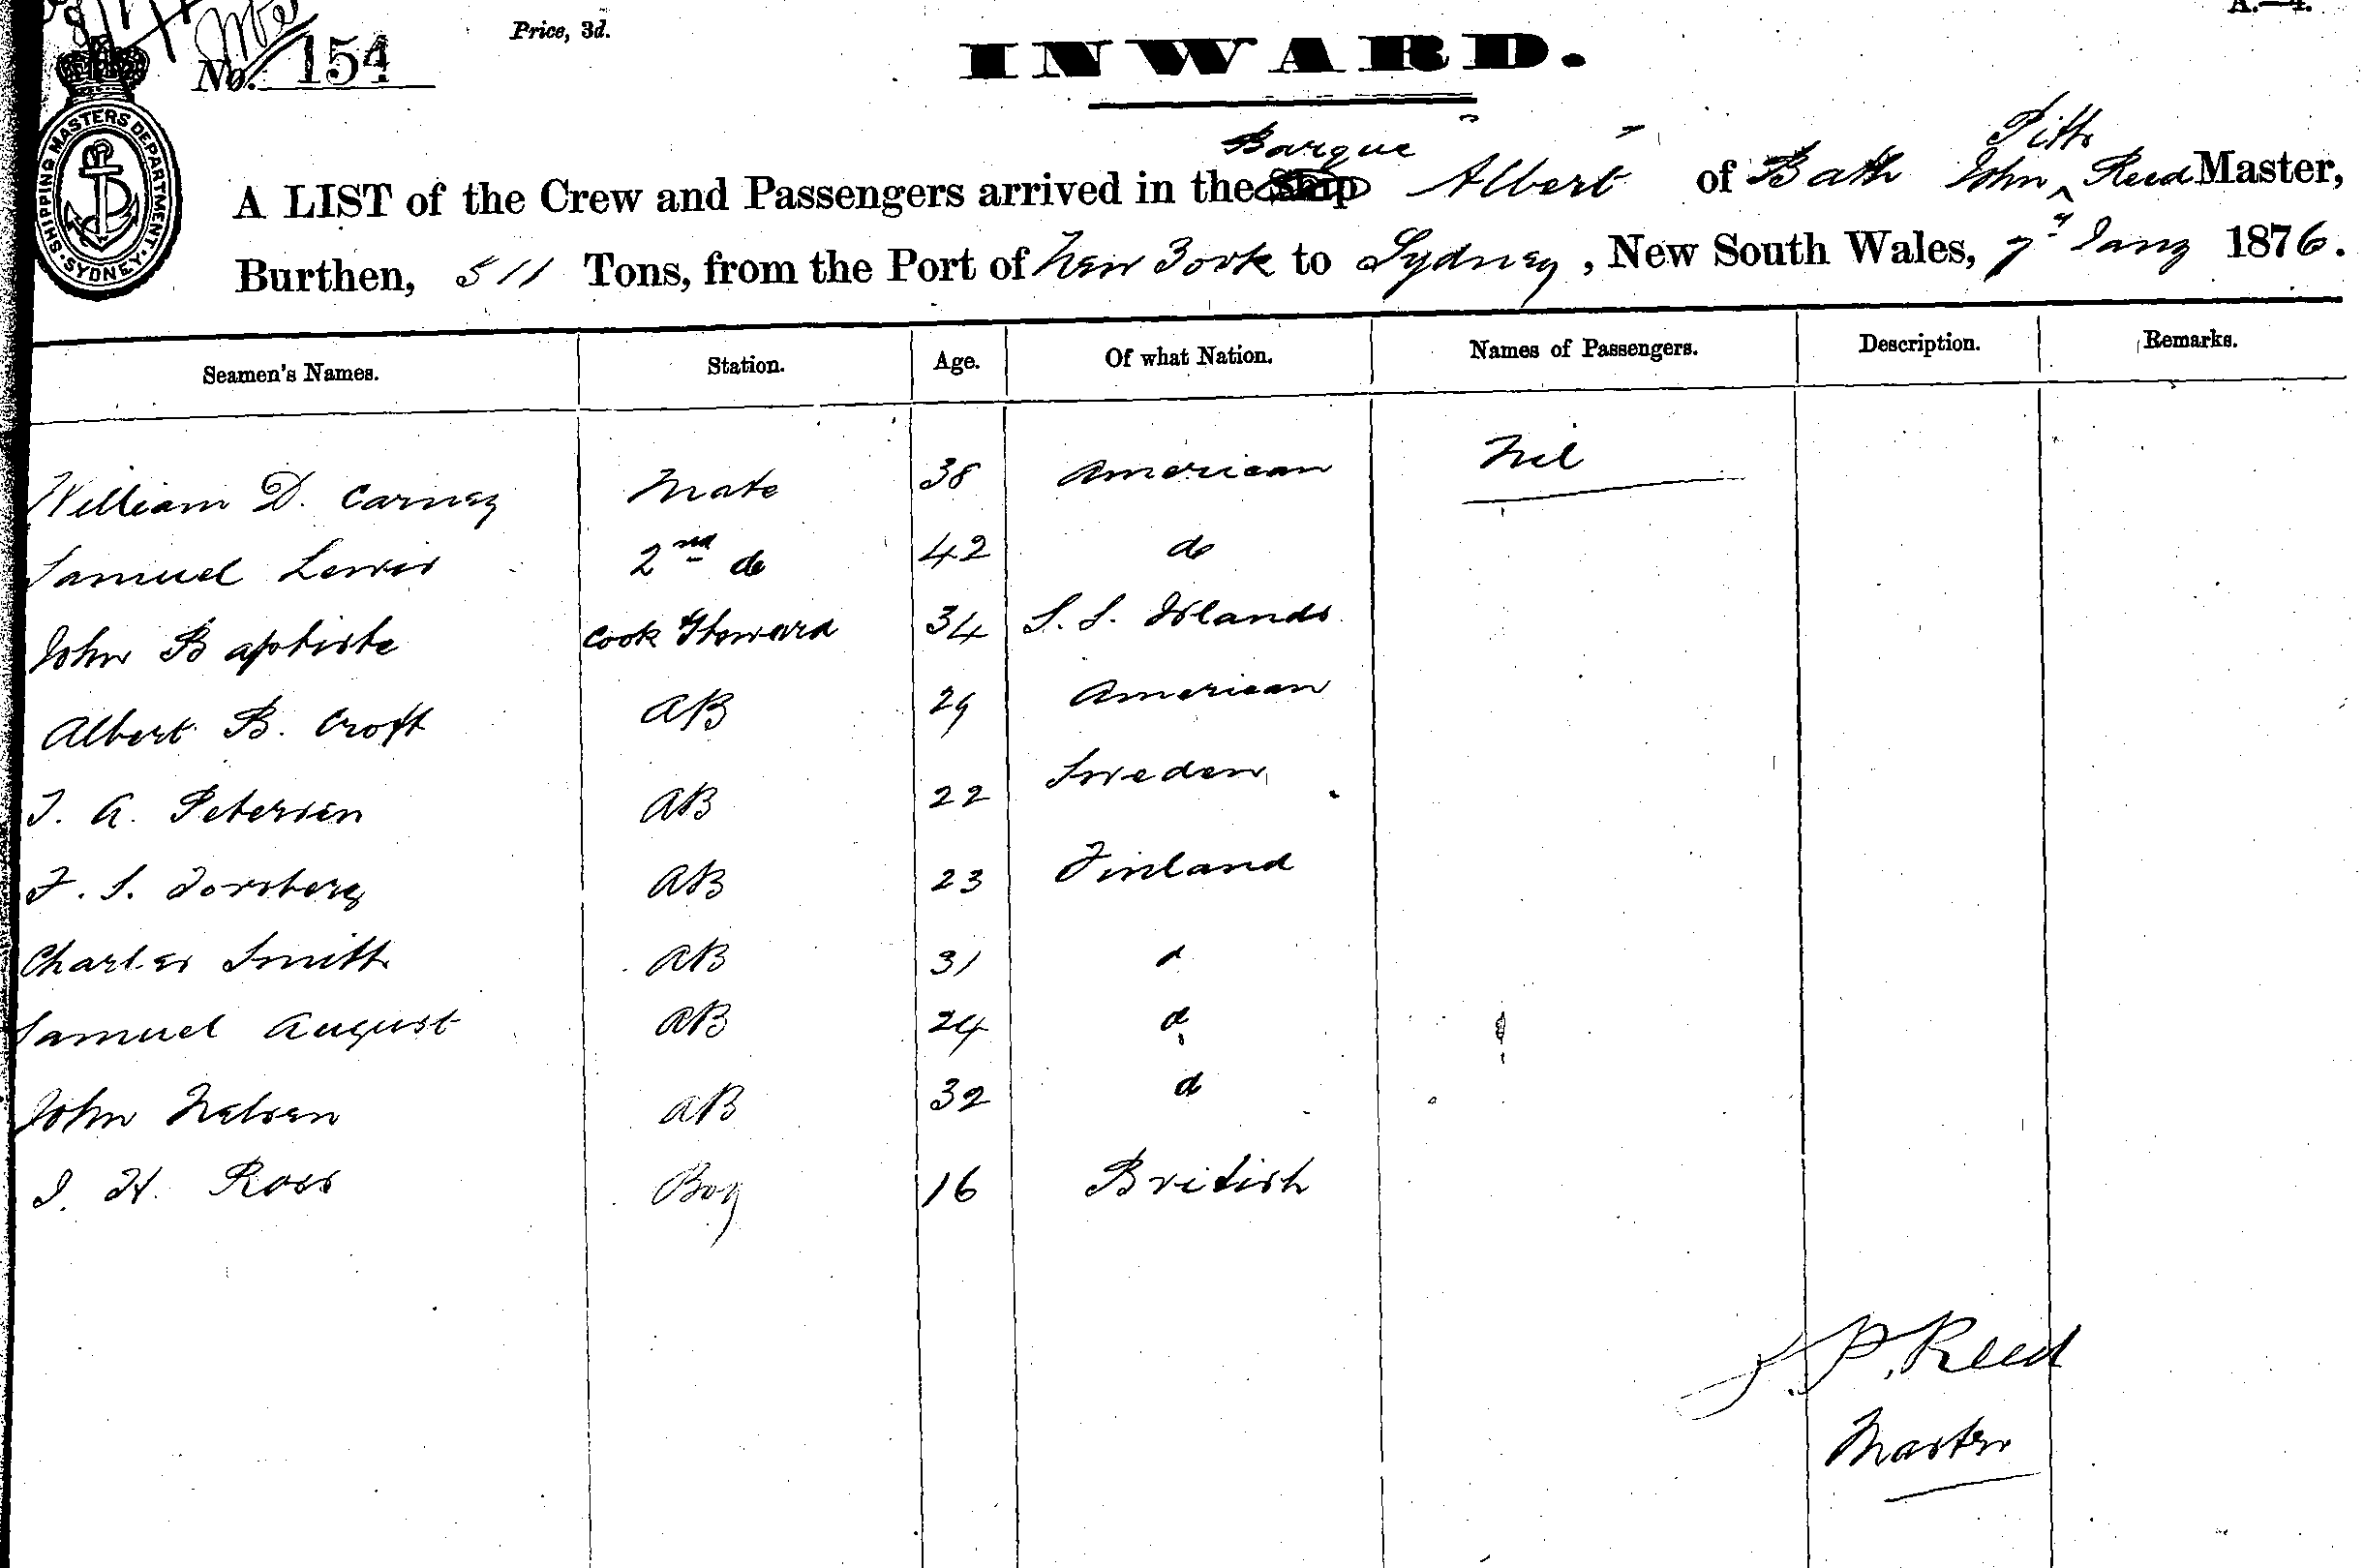 A.—4.
Price, 3d.
No. 154
INWARD.
SHIPPING MASTERS DEPARTMENT · SYDNEY ·
Barque Pitts
A LIST of the Crew and Passengers arrived in the Ship Albert of Bath John ^ Reed Master,
Burthen, 511 Tons, from the Port of New York to Sydney, New South Wales, 7th Jany 1876.
Seamen's Names. Station. Age. Of what Nation. Names of Passengers. Description. Remarks.
William D. Carney Mate 38 American Nil
Samuel Lewis 2nd do 42 do
John Baptiste Cook & Steward 34 S. S. Islands
Albert B. Croft AB 29 American
T. A. Petersen AB 22 Sweden
F. S. Forsberg AB 23 Finland
Charles Smith AB 31 d
Samuel August AB 24 d
John Nelsen AB 32 d
J. H. Ross Boy 16 British
J. P. Reed
Master